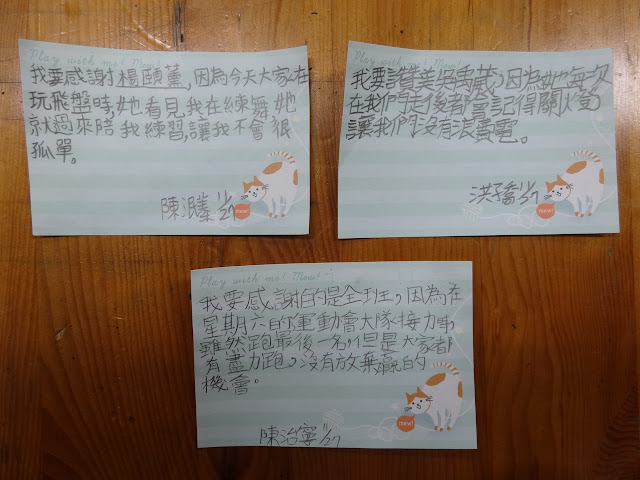 Play with me! Mew!
我要感謝楊頤薰,因為今天大家在
玩飛盤時,她看見我在練舞她
就過來陪我練習,讓我不會很
孤單。
陳滉蓁 11/27
mew!
Play with me! Mew!
我要讚美吳禹葳,因為她每次
在我們走後都會記得關火
讓我們沒有浪費電。
洪子喬 11/27
mew!
Play with me! Mew!
我要感謝的是全班,因為在
星期六的運動會大隊接力時,
雖然跑最後一名,但是大家都
有盡力跑。沒有放棄贏的
機會。
陳治寧 11/27
mew!